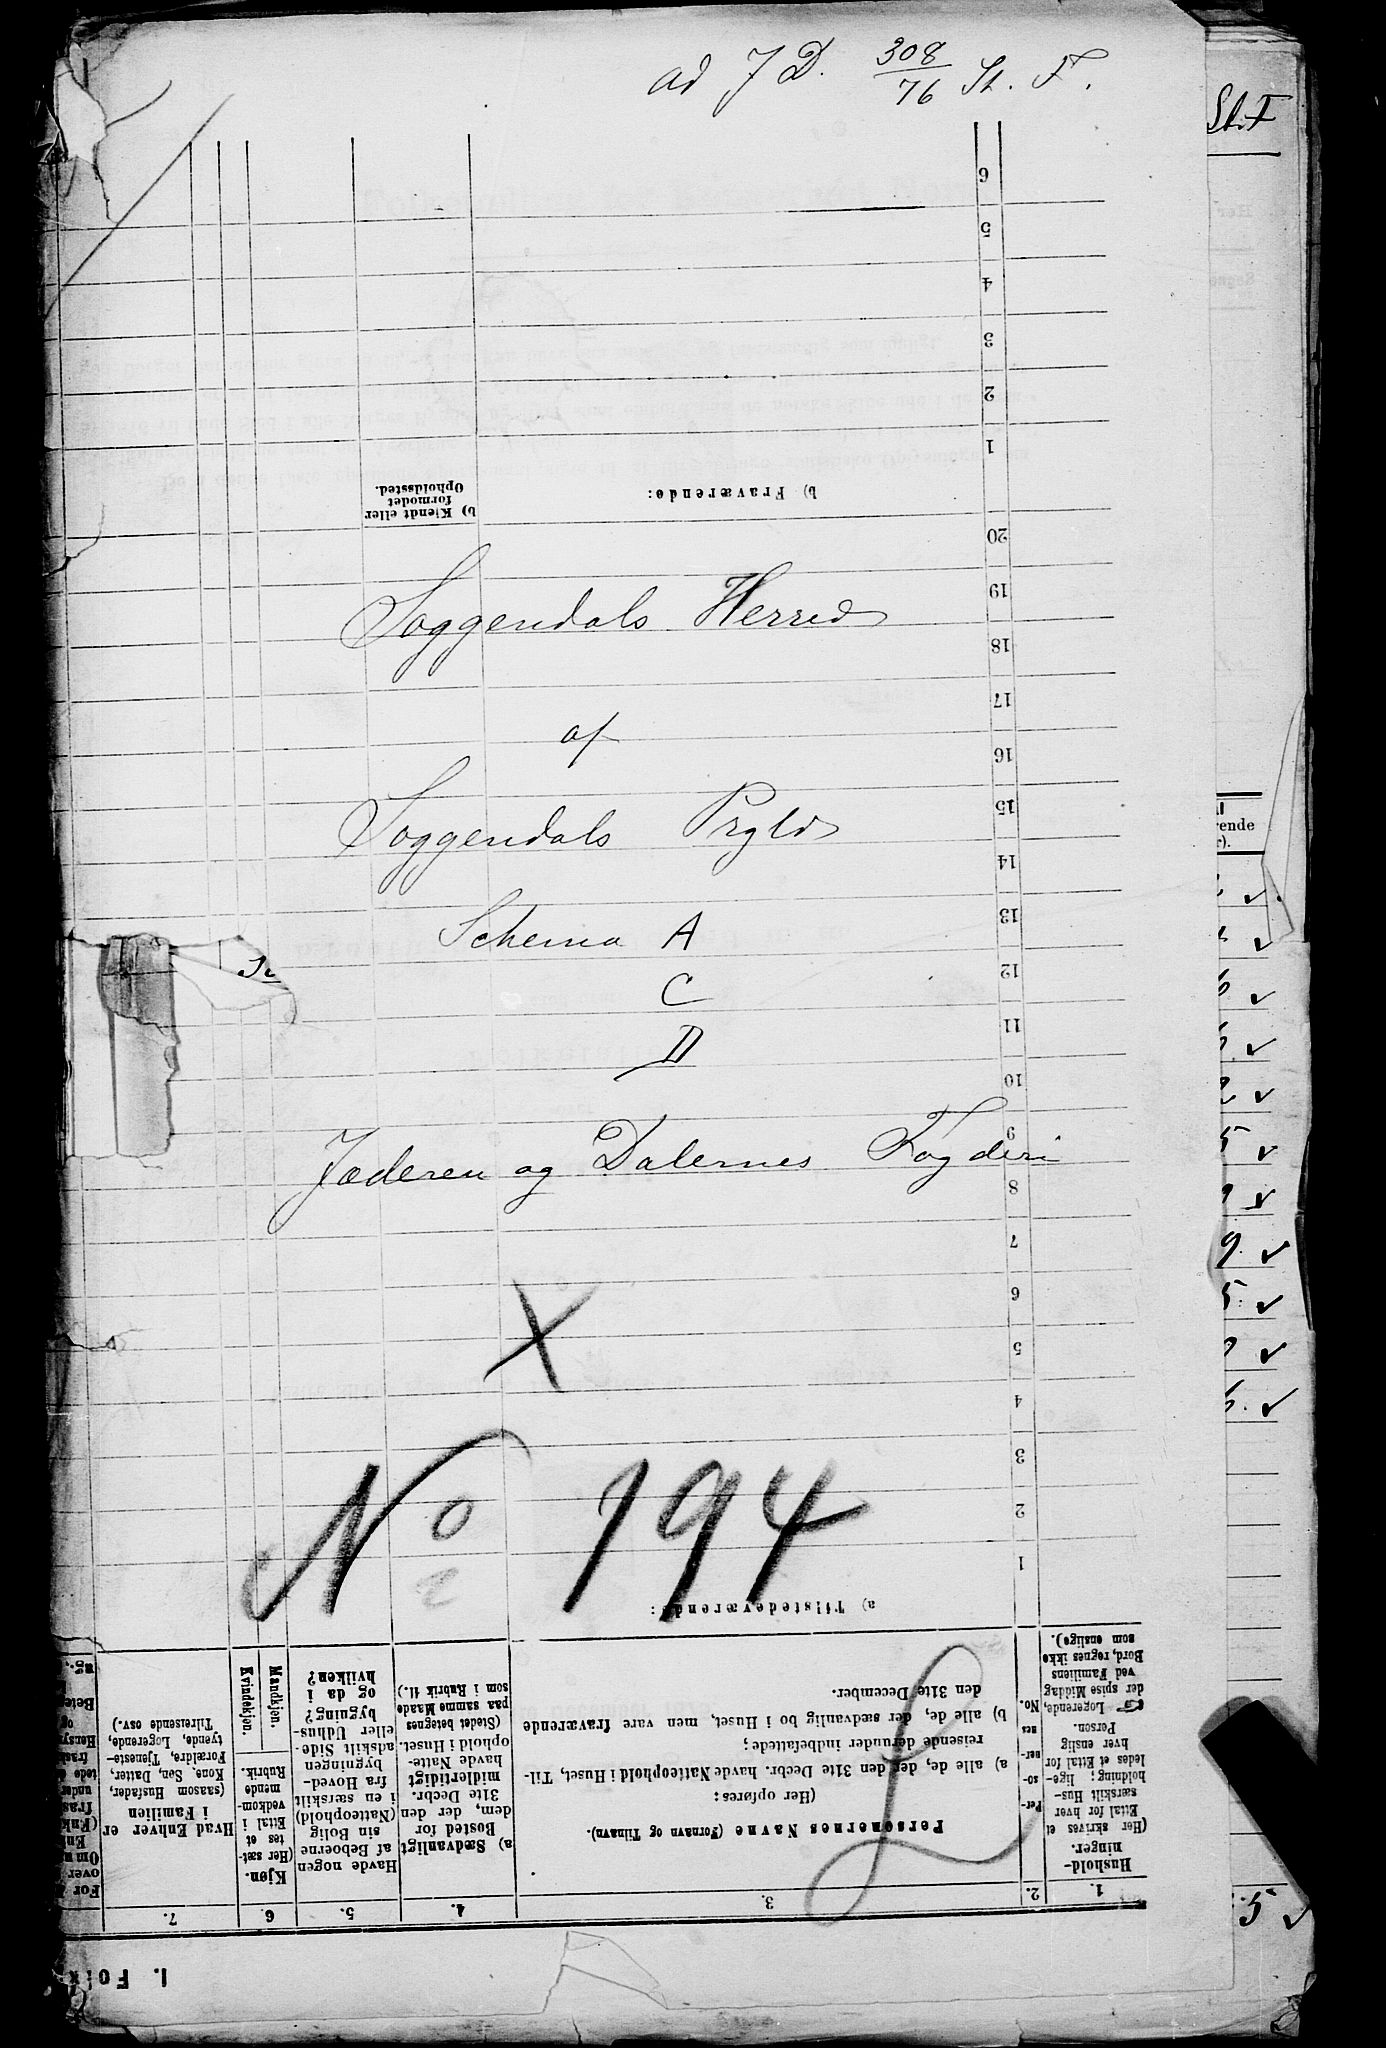 ad J D. 308/76 St. F.
St. F
6
5
4
3
2
1
b) Kjendt eller
formodet
Opholdssted.
b) Fraværende:
20
19
Soggendals Herred
18
17
af
16
15
Soggendals Prgld
14
13
Schema A
12
C
11
D
10
9
Jæderen og Dalernes Fogderi
8
7
6
X
5
4
3
2
No 194
1
a) Tilstedeværende:
1.
Hushold-
ninger.
(Her skrives et
Ettal for hver
særskilt Hus-
holdning; lige-
ledes et Ettal for
hver enslig
Person.
☞ Logerende,
der spise Middag
ved Familiens
Bord, regnes ikke
som enslige).
2.
Per-
so-
ner-
nes
No.
3.
Personernes Navne (Fornavn og Tilnavn).
(Her opføres:
a) alle de, der den 31te Decbr. havde Natteophold i Huset, Til-
reisende derunder indbefattede;
b) alle de, der sædvanlig bo i Huset, men vare fraværende
den 31te December.
4.
a) Sædvanligt
Bosted for
dem, der den
31te Decbr.
midlertidigt
havde Natte-
ophold i Huset.
(Stedet betegnes
paa samme Maade
som i Rubrik 11.)
5.
Havde nogen
af Beboerne
sin Bolig
(Natteophold)
i en særskilt
fra Hoved-
bygningen
adskilt Side-
eller Udhus-
bygning?
og da i
hvilken?
6.
Kjøn.
(Her sæt-
tes et
Ettal i
vedkom-
mende
Rubrik.
Mandkjøn.
Kvindekjøn.
7.
Hvad Enhver er
i Familien
(saasom Husfader,
Kone, Søn, Datter,
Forældre, Tjeneste-
tyende, Logerende,
Tilreisende osv.)
1. Fol